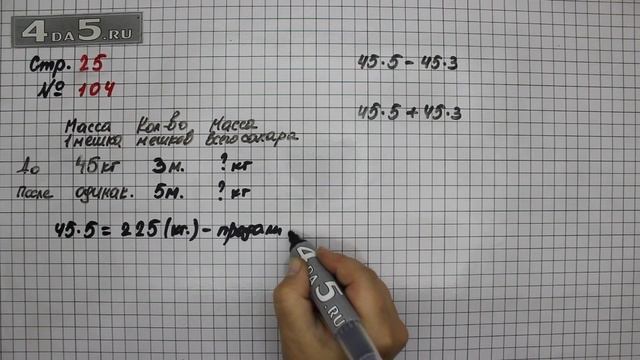 4DA5.RU
Стр. 25
№ 104
45·5 - 45·3
45·5 + 45·3
Масса Кол-во Масса
1 мешка мешков всего сахара
До 45 кг 3 м. ? кг
После одинак. 5 м. ? кг
45·5 = 225 (кг.) - продали
4DA5.RU